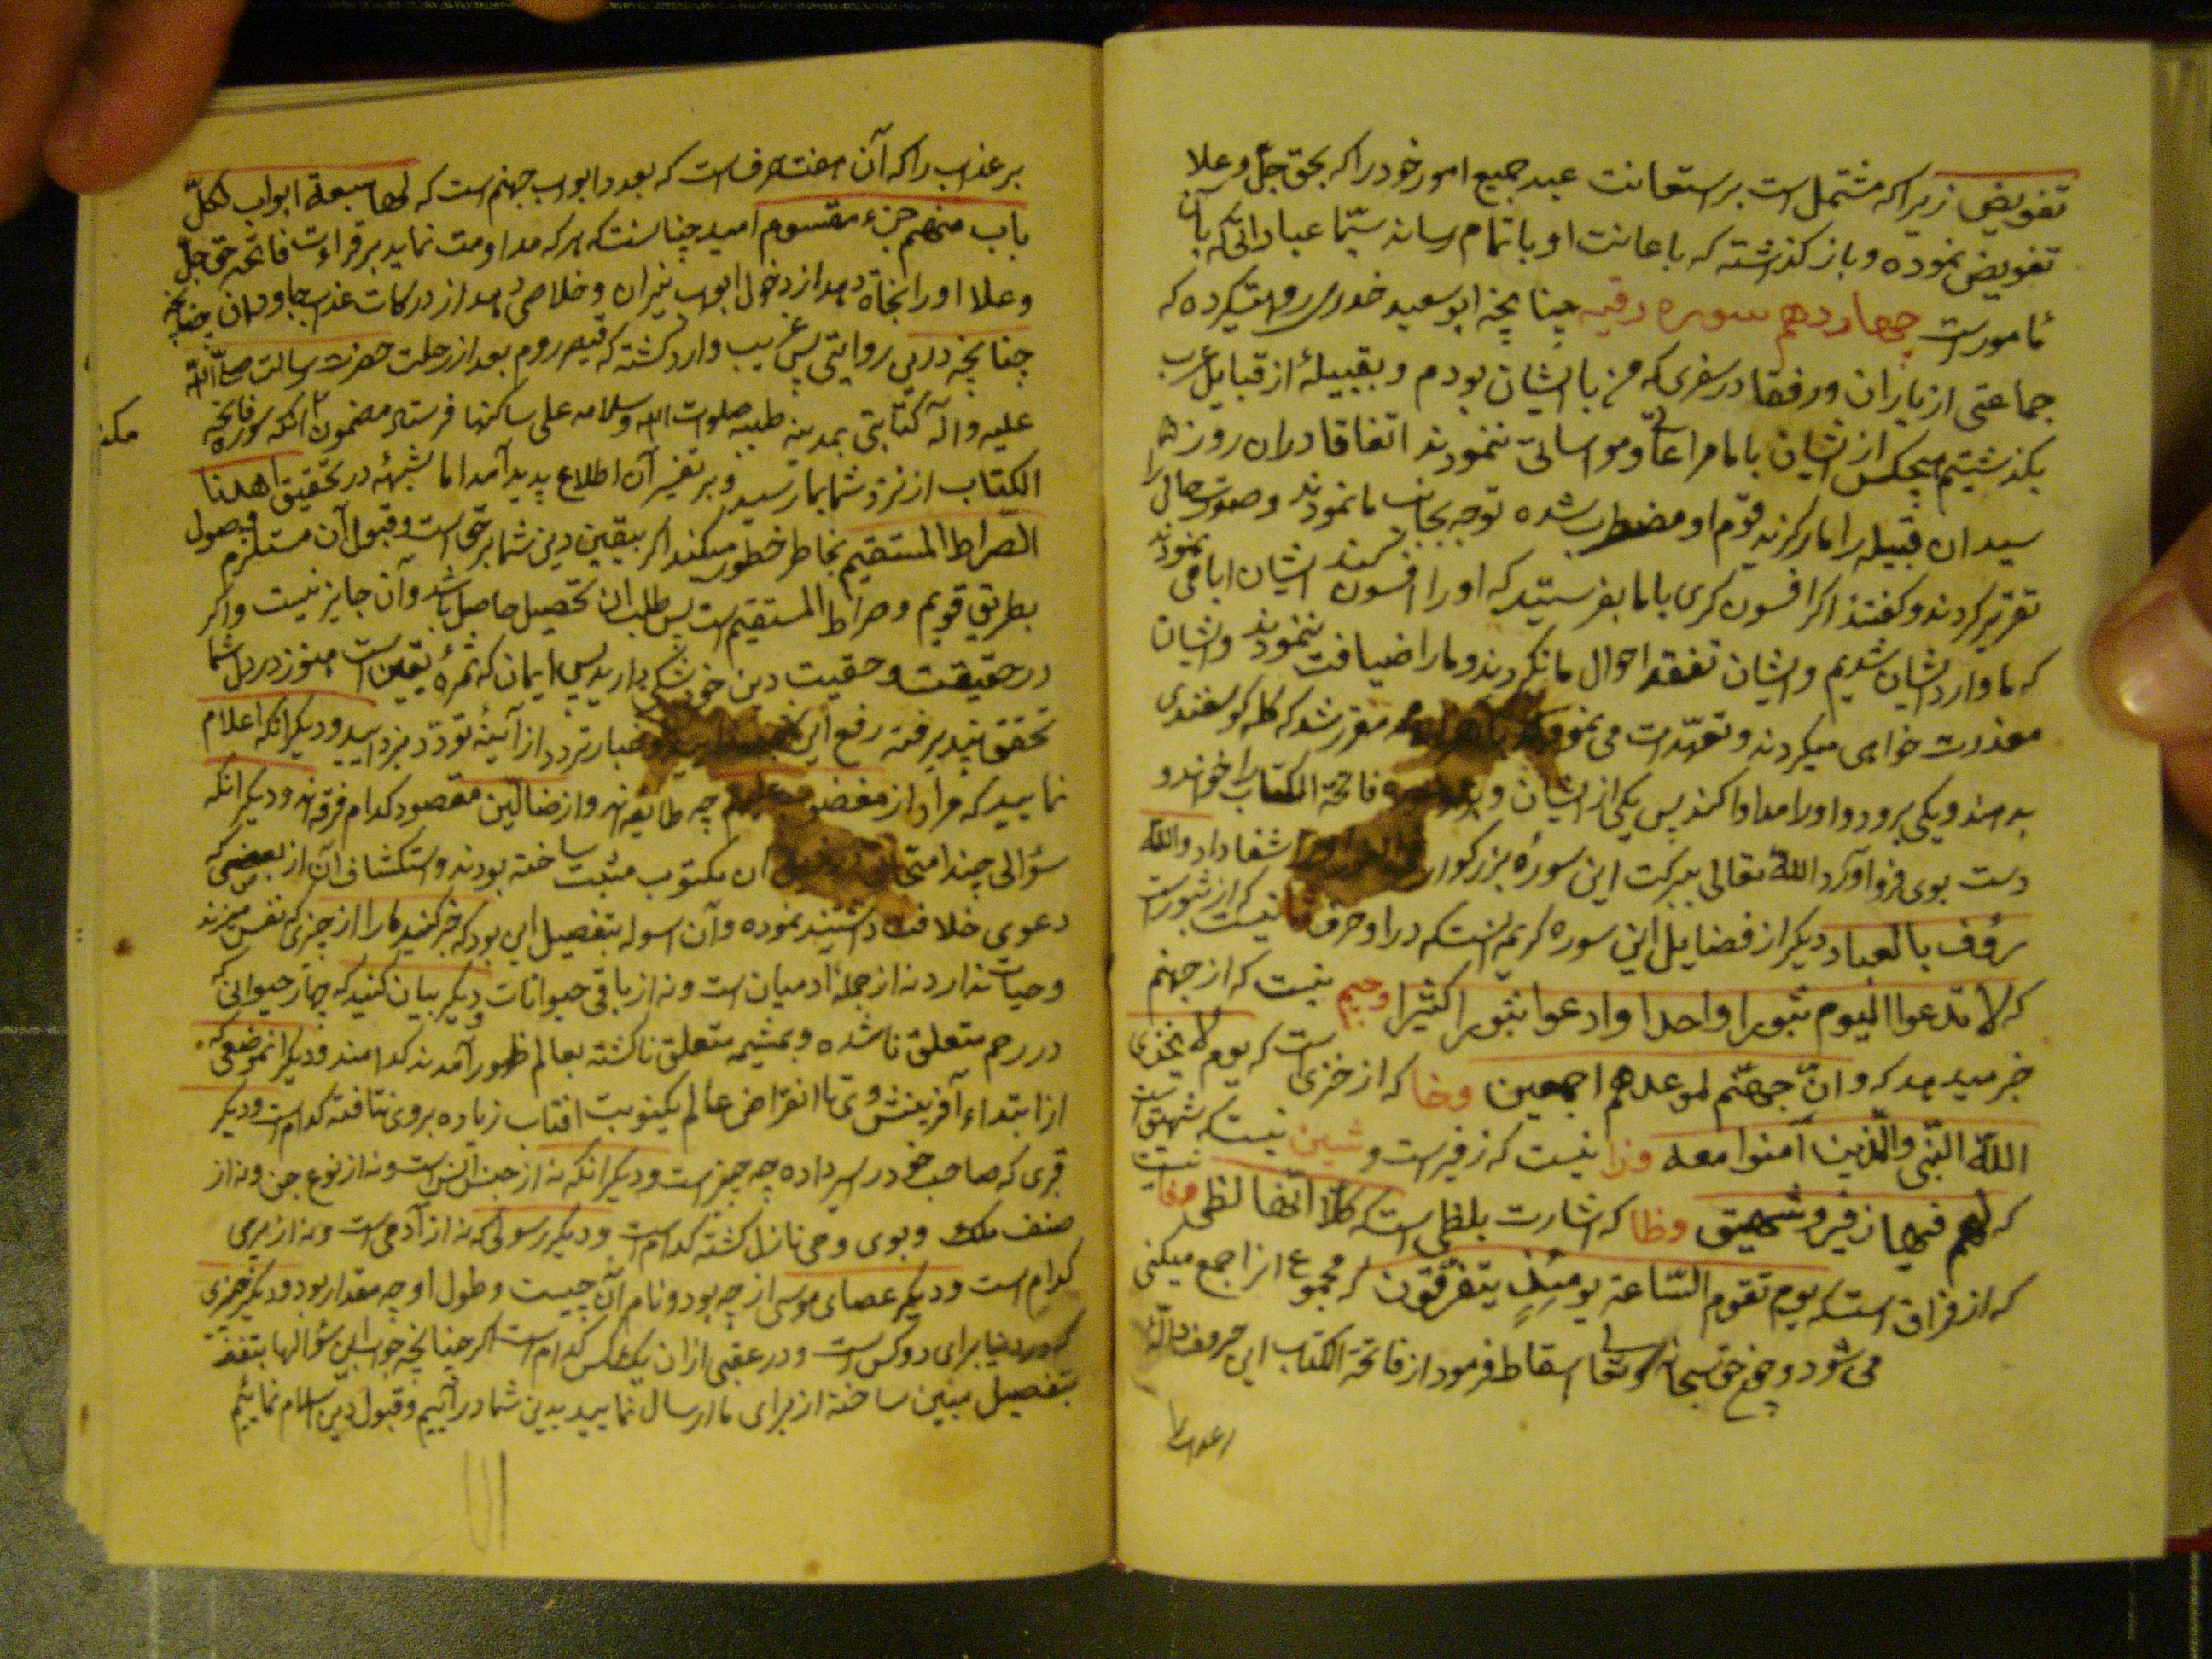 تفویض زیرا که مشتمل است بر استعانت عبد جمیع امور خود را که بحق جلّ وعلا
تفویض نموده و باز کذشته که باعانت او باتمام رساند سیّما عباداتی که بان
مأمورست چهاردهم سوره رقیه چنانچه ابو سعید خدری روایت کرده که
جماعتی از یاران و رفقا در سفری که من با ایشان بودم و بقبیلهٔ از قبایل عرب
بکذشتیم هیچکس از ایشان باما مراعاتی و مواساتی ننمودند اتفاقا دران روزها
سید ان قبیله را مار کزید قوم او مضطرب شده توجه بجانب ما نمودند و صورت حالی را
تقریر کردند و کفتند اکر افسون کری باما بفرستید که او را افسون کند ایشان ابا می نمودند
که ما وارد ایشان شدیم و ایشان تفقد احوال ما نکردند و مارا ضیافت ننمودند وایشان
معذرت خواهی میکردند و تعهدات می نمودند مقرر شد که کله کوسفندی
بدهند و یکی برود و اورا مداوا کند پس یکی از ایشان فاتحة الکتاب را خواند و
دست بوی فرو آورد الله تعالی ببرکت این سورهٔ بزرکوار شفا داد والله
رؤف بالعباد دیکر از فضایل این سوره کریمه انستکه در او حرف ثا نیست که از ثبورست
که لا تدعوا الیوم ثبورا واحدا وادعوا ثبورا کثیرا وجیم نیست که از جهنم
خبر میدهد که وانّ جهنّم لموعدهم اجمعین وخا که از خزی است که یوم لا یخزی
اللّه النّبی والّذین آمنوا معه وزا نیست که زفیرست و شین نیست که شهیق است
که لهم فیها زفیر وشهیق وظا که اشارت بلظی است که کلّا انّها لظی وفا نیست
که از فراق است که یوم تقوم السّاعة یومئذٍ یتفرّقون که مجموع انرا جمع میکنی
می شود و حق سبحانه وتعالی اسقاط فرمود از فاتحة الکتاب این حروف دالّهٔ
بر عذاب را که آن هفت حرف است که بعدد ابواب جهنم است که لها سبعة ابواب لکلّ
باب منهم جزء مقسوم امید چنانست که هر که مداومت نماید بر قراءت فاتحه حق جلّ
وعلا او را نجاة دهد از دخول ابواب نیران و خلاصی دهد از درکات عذاب جاودان چنانچه
چنانچه در بی روایتی پس غریب وارد کشته که قیصر روم بعد از رحلت حضرت رسالت صلّی الله
علیه وآله کتابتی بمدینه طیبه صلوات الله وسلامه علی ساکنها فرستاد مضمون انکه سوره فاتحة
الکتاب از نزد شما بما رسید و بر تفسیر آن اطلاع پدید آمد اما شبهه در تحقیق اهدنا
الصّراط المستقیم بخاطر خطور میکند اکر بیقین دین شما بر حق است و قبول آن مستلزم وصول
بطریق قویم و صراط المستقیم است پس طلب ان تحصیل حاصل باشد وآن جایز نیست واکر
در حقیقت و حقیت دین خود شکی دارید پس ایمان که ثمرهٔ یقین است هنوز در دل شما
تحقق نپذیرفته رفع این غبار تردد از آینهٔ تودّد بزدایید و دیکر انکه اعلام
نمایید که مراد از مغضوب علیهم چه طایفه اند و از ضالین مقصود کدام فرقه اند و دیکر انکه
سؤالی چند ان مکتوب مثبت ساخته بودند واستکشاف آن از بعضی که
دعوی خلافت داشتند نموده وآن اسوله بتفصیل این بود که خبر کنید مارا از چیزی که نفس میزند
وحیات ندارد نه از جملهٔ ادمیان است و نه از باقی حیوانات و دیکر بیان کنید که چهار حیوانی که
در رحم متعلق ناشده و بمشیمه متعلق ناکشته بعالم ظهور آمدند کدامند و دیکر انموضعی که
از ابتداء آفرینش وی تا انقراض عالم یکنوبت افتاب زیاده بروی نتافته کدام است و دیکر
قبری که صاحب خود را سیر داده چه چیز است و دیکر انکه نه از جنس انس است و نه از نوع جن و نه از
صنف ملک و بوی وحی نازل کشته کدام است و دیکر رسولی که نه از آدمی است و نه از پری
کدام است و دیکر عصای موسی از چه بود و نام آن چیست و طول او چه مقدار بود و دیکر چیزی
که در دنیا برای دو کس است و در عقبی ازان یک کس کدام است اکر چنانچه جواب این سؤالها
بتفصیل مبین ساخته از برای ما ارسال نمایید بدین شما درآییم و قبول دین اسلام نماییم